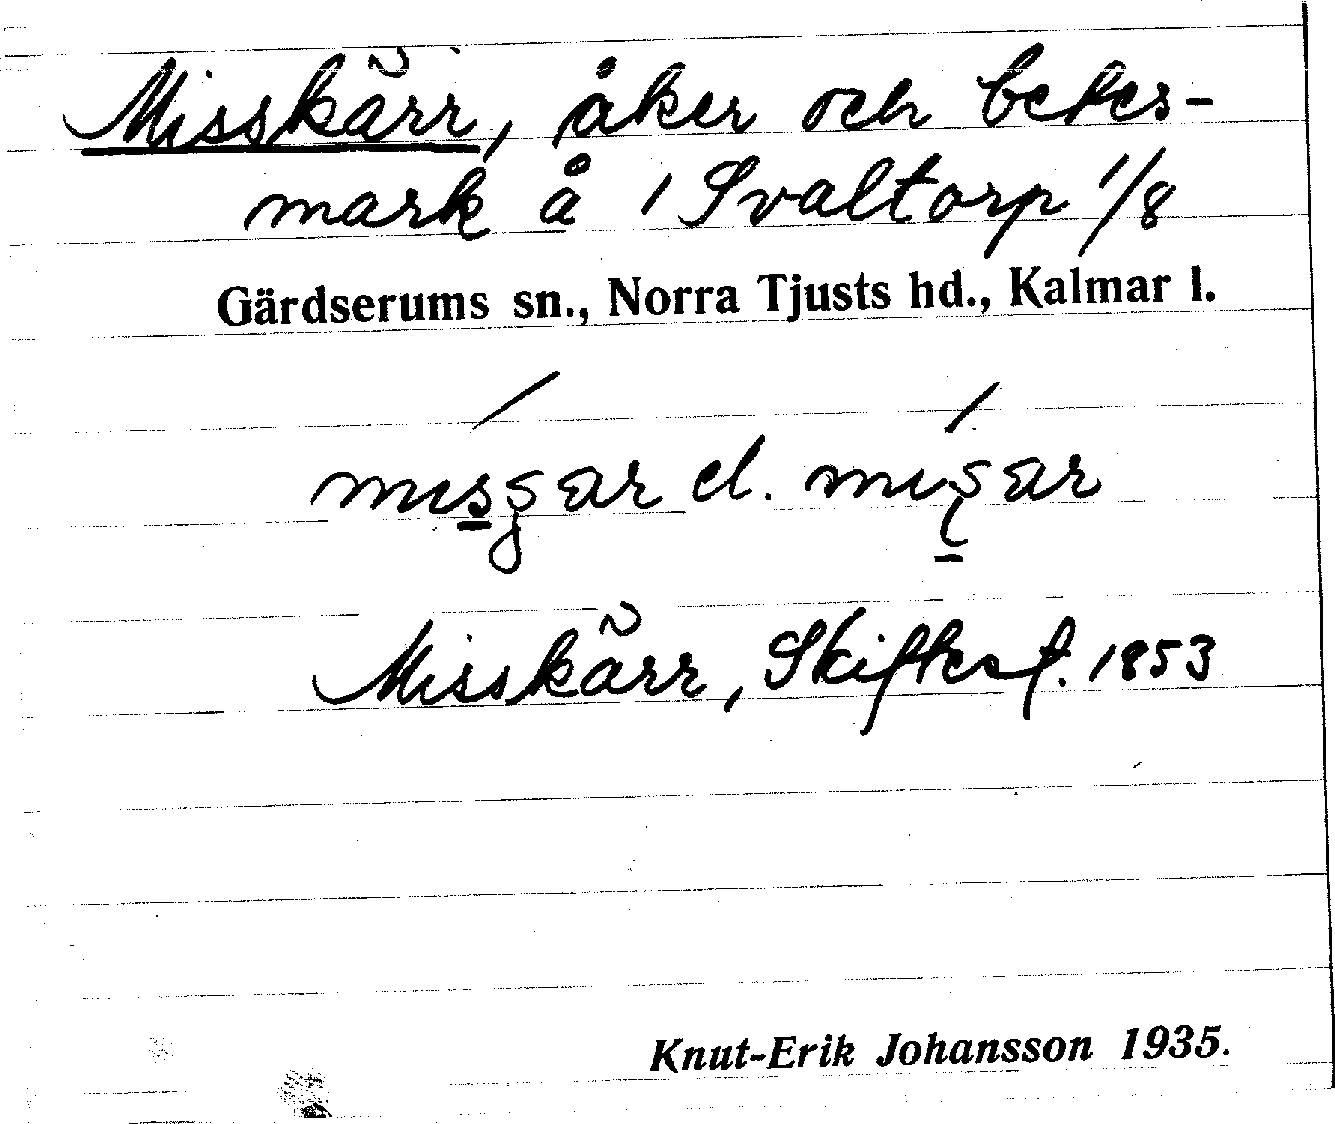 Misskärr, åker och betes-
mark å 1 Svaltorp 1/8
Gärdserums sn., Norra Tjusts hd., Kalmar l.
el.
Misskärr, Skiftesf. 1853
Knut-Erik Johansson 1935.